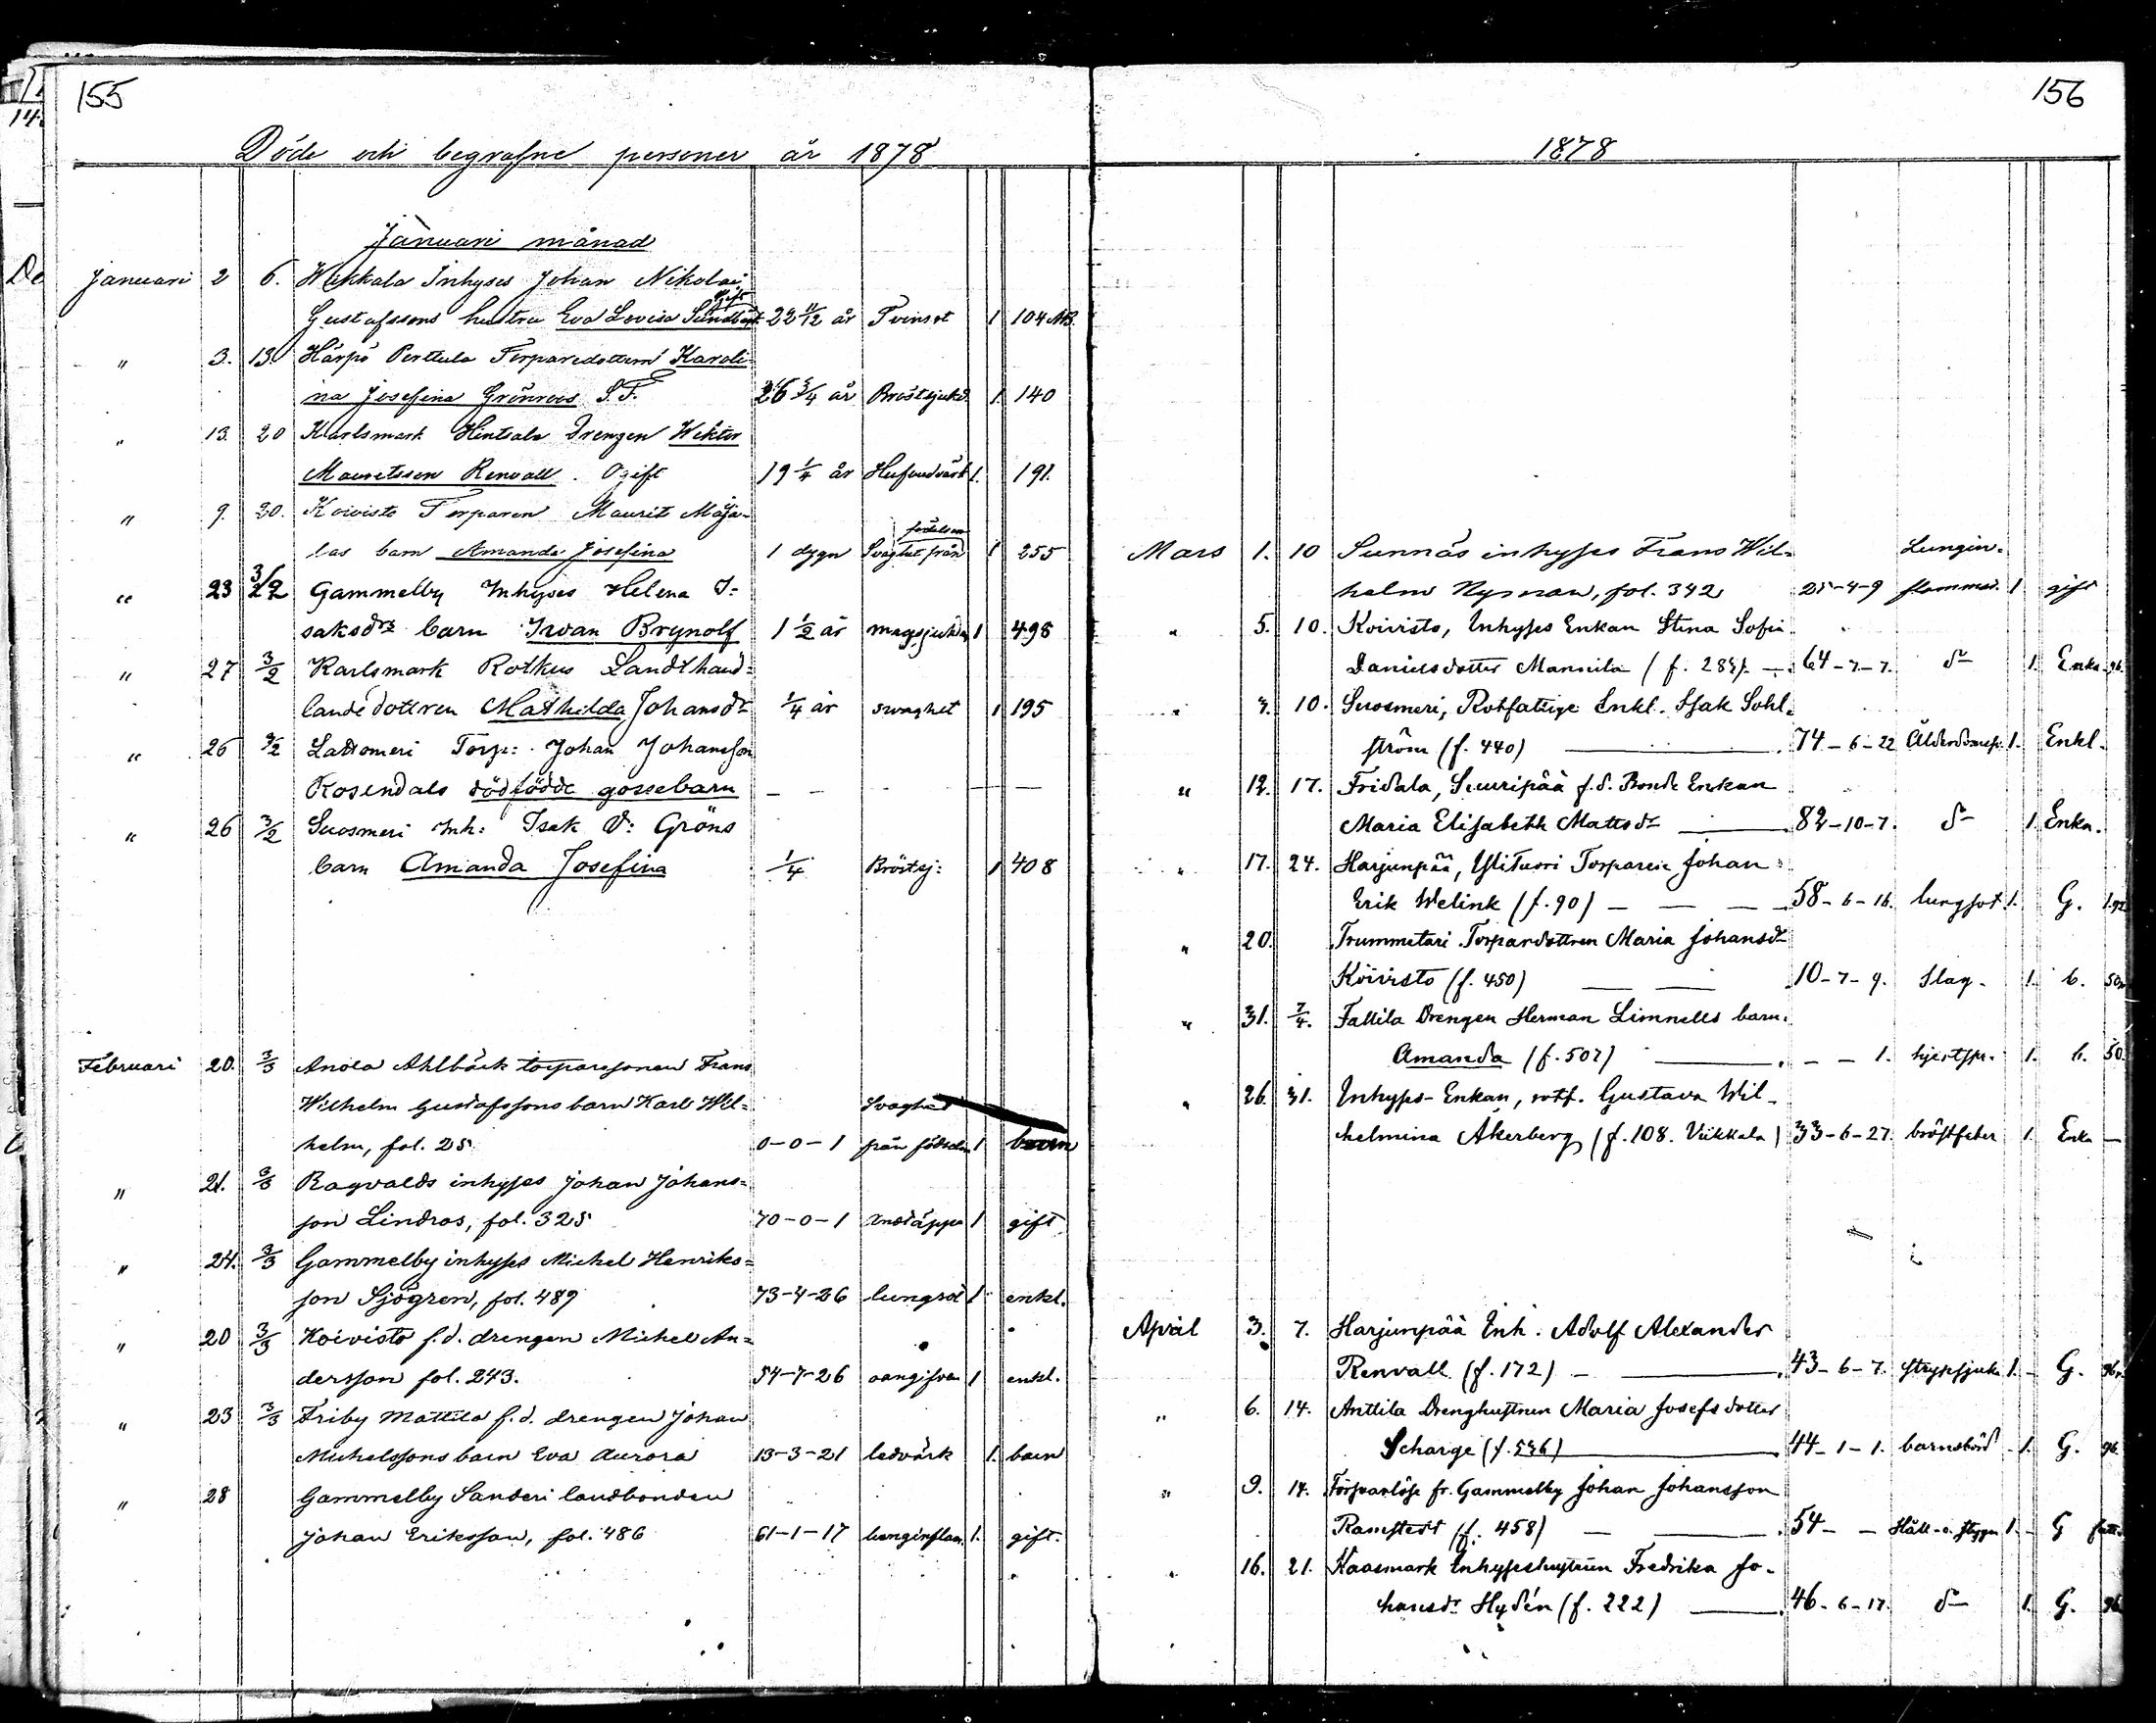 155
Döde och begrafne personer år 1878
Januari månad
Januari 2 6. Wikkala Inhyses Johan Nikolai
Gustafssons hustru Eva Lovisa Sundbäck gift 22 11/12 år Tvinsot 1 104
" 3. 13. Härpö Perttula Torparedottern Karoli-
na Josefina Grönroos 26 3/4 år Bröstsjukd. 1. 140
" 13. 20 Karlsmark Hintsala Drengen Wiktor
Mauritsson Renvall. Ogift 19 1/4 år Hufvudvärk 1. 191.
" 9. 20. Koivisto Torparen Maurit Maja-
las barn Amanda Josefina 1 dygn Svaghet från födelsen 1 255
" 23 3/2 Gammelby Inhyses Helena I-
saksdrs barn Ivan Brynolf 1 1/2 år magsjukdom 1 498
" 27 3/2 Karlsmark Rotkus Landthand-
lande dottren Mathilda Johansdr 1/4 år svaghet 1 195
" 26 3/2 Lattomeri Torp: Johan Johansson
Rosendals dödfödde gossebarn — — — —
" 26 3/2 Suosmeri Inh: Isak Gröns
barn Amanda Josefina 1/4 Bröstsj: 1 408
Februari 20. 3/3 Anola Ahlbäck torparesonen Frans
Wilhelm Gustafssons barn Karl Wil- Svaghet
helm, fol. 25 0-0-1 från födseln 1 barn
" 21. 3/3 Ragvalds inhyses Johan Johans-
son Lindros, fol. 325 70-0-1 andtäppa 1 gift
" 24. 3/3 Gammelby inhyses Michel Henriks-
son Sjögren, fol. 489 73-4-26 lungsot 1 enkl.
" 20 3/3 Koivisto f.d. drengen Michel An-
dersson fol. 243. 54-7-26 oangifven 1 enkl.
" 23 3/3 Friby Mattila f.d. drengen Johan
Michelssons barn Eva Aurora 13-3-21 ledvärk 1. barn
" 28 Gammelby Sanderi landbonden
Johan Eriksson, fol. 486 61-1-17 lunginflam. 1. gift.
156
1878
Mars 1. 10 Sunnäs inhyses Frans Wil- Lungin-
helm Nyman, fol. 342 25-4-9 flammat. 1 gift
" 5. 10. Koivisto, Inhyses Enkan Stina Sofia
Danielsdotter Mannila 64-7-7. do 1. Enka
" 3. 10. Suosmeri, Rotfattige Enkl. Isak Sohl-
ström (f. 440) 74-6-22 1. Enkl.
" 12. 17. Fridala, Suuripää f.d. Bonde Enkan
Maria Elisabeth Mattsdr 82-10-7. do 1. Enka.
" 17. 24. Harjunpää, Ylituori Torparen Johan
Erik Welink (f. 90) 58-6-16. lungsot 1. G.
" 20. Trummetari Torparedottren Maria Johansdr
Koivisto (f. 450) 10-7-9. Slag. 1. b.
" 31. 7/4. Fattila Drengen Herman Limnells barn
Amanda (f. 507) — — 1. 1. b. 50.
" 26. 31. Inhyses Enkan, rotf. Gustava Wil-
helmina Åkerberg (f. 108. Vikkala) 33-6-27. bröstfeber 1. Enka —
April 3. 7. Harjunpää Inh. Adolf Alexander
Renvall (f. 172) 43-6-7. strypsjuka 1. G.
" 6. 14. Anttila Drenghustrun Maria Josefsdotter
Scharge (f. 536) 44-1-1. barnsbörd 1. G.
" 9. 14. Försvarlöse fr. Gammelby Johan Johansson
Ramstedt (f. 458) 54 — — Håll o. stygn 1. G
" 16. 21. Kaasmark Inhyseshustrun Fredrika Jo-
hansdr Hydén (f. 222) 46-6-17. do 1. G.